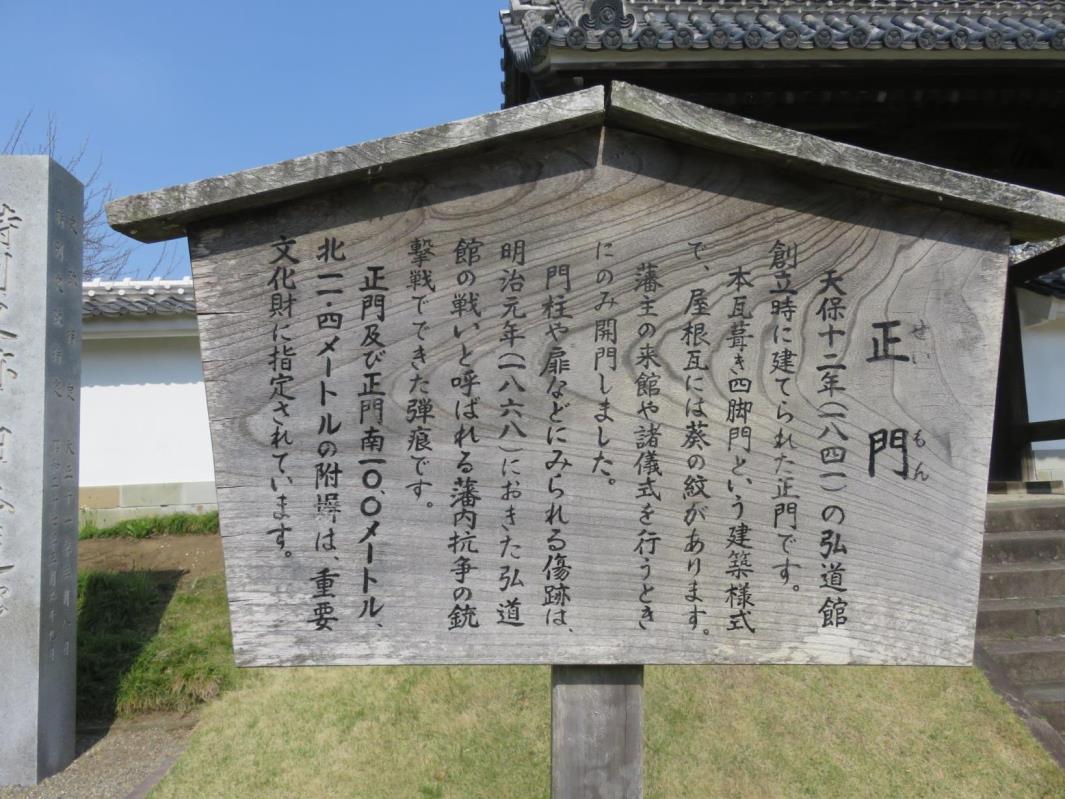 正門
せいもん
天保十二年(一八四一)の弘道館
創立時に建てられた正門です。
本瓦葺き四脚門という建築様式
で、屋根瓦には葵の紋があります。
藩主の来館や諸儀式を行うとき
にのみ開門しました。
門柱や扉などにみられる傷跡は、
明治元年(一八六八)におきた弘道
館の戦いと呼ばれる藩内抗争の銃
撃戦でできた弾痕です。
正門及び正門南一〇.〇メートル、
北一一・四メートルの附塀は、重要
文化財に指定されています。